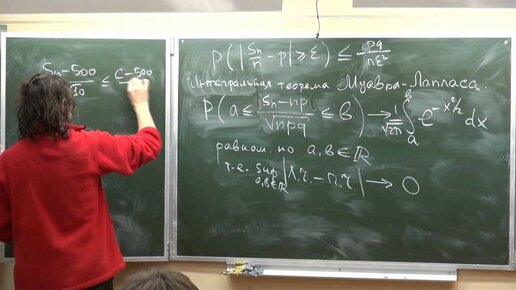 (Sn-500)/10 ≤ (C-500)/
P(|Sn/n - p| ≥ ε) ≤ pq/nε²
Интегральная теорема Муавра-Лапласа.
P(a ≤ (Sn-np)/√npq ≤ b) → 1/√2π ∫ₐᵇ e^(-x²/2) dx
равном. по a, b ∈ ℝ
т.е. sup a,b∈ℝ |л.ч. - п.ч.| → 0